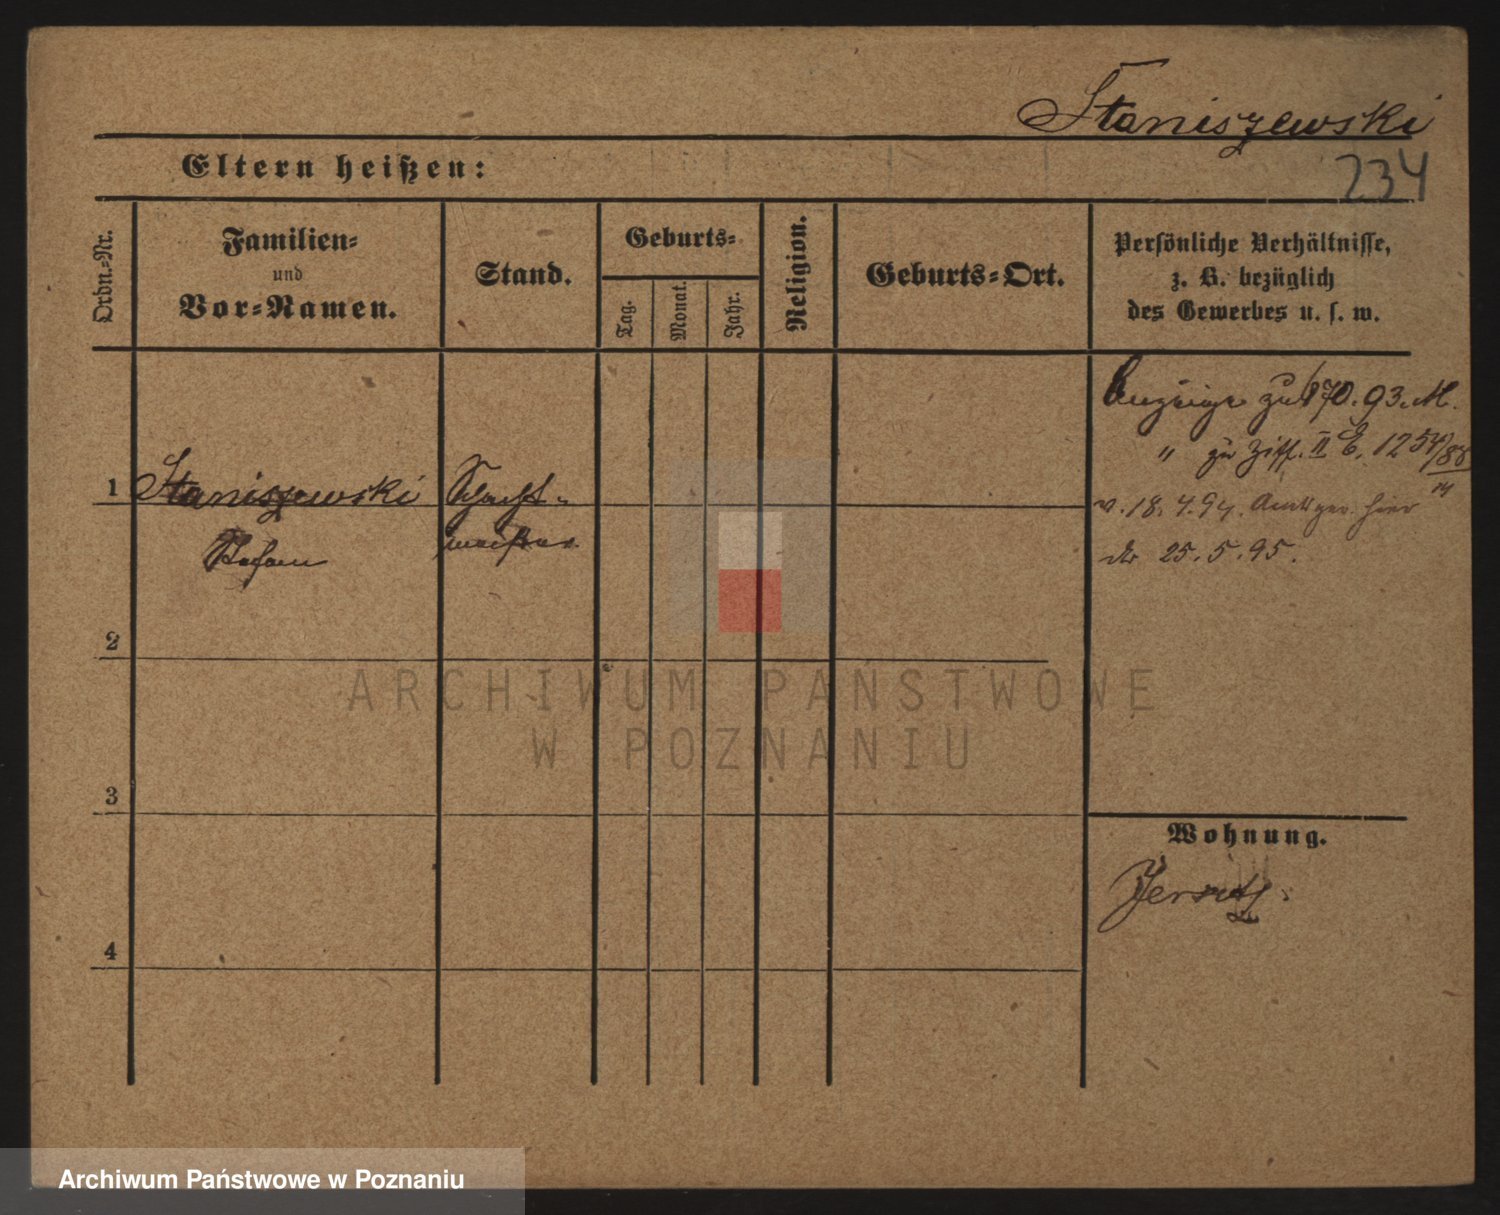 Staniszewski
Eltern heißen:
234
Ordn.-Nr.
Familien-
und
Vor-Namen.
Stand.
Geburts-
Tag.
Monat.
Jahr.
Religion.
Geburts-Ort.
Persönliche Verhältnisse,
z. B. bezüglich
des Gewerbes u. s. w.
Anzeige zu 170.93.M.
" zu Ziff. II E. 1254/88
1 Staniszewski Schacht-
v. 18.4.94. Amtsger. hier
Stefan meister
25.5.95.
2
ARCHIWUM PAŃSTWOWE
W POZNANIU
3
Wohnung.
Jersitz
4
Archiwum Państwowe w Poznaniu